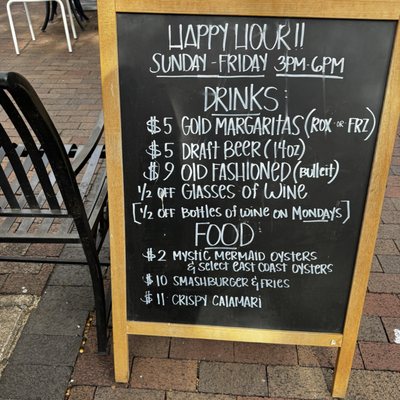 HAPPY HOUR!!
SUNDAY-FRIDAY 3PM-6PM
DRINKS:
$5 GOLD MARGARITAS (ROX OR FRZ)
$5 DRAFT BEER (14oz)
$9 OLD FASHIONED (Bulleit)
1/2 OFF GLASSES OF WINE
[1/2 OFF BOTTLES OF WINE ON MONDAYS]
FOOD
$2 MYSTIC MERMAID OYSTERS
& SELECT EAST COAST OYSTERS
$10 SMASHBURGER & FRIES
$11 CRISPY CALAMARI